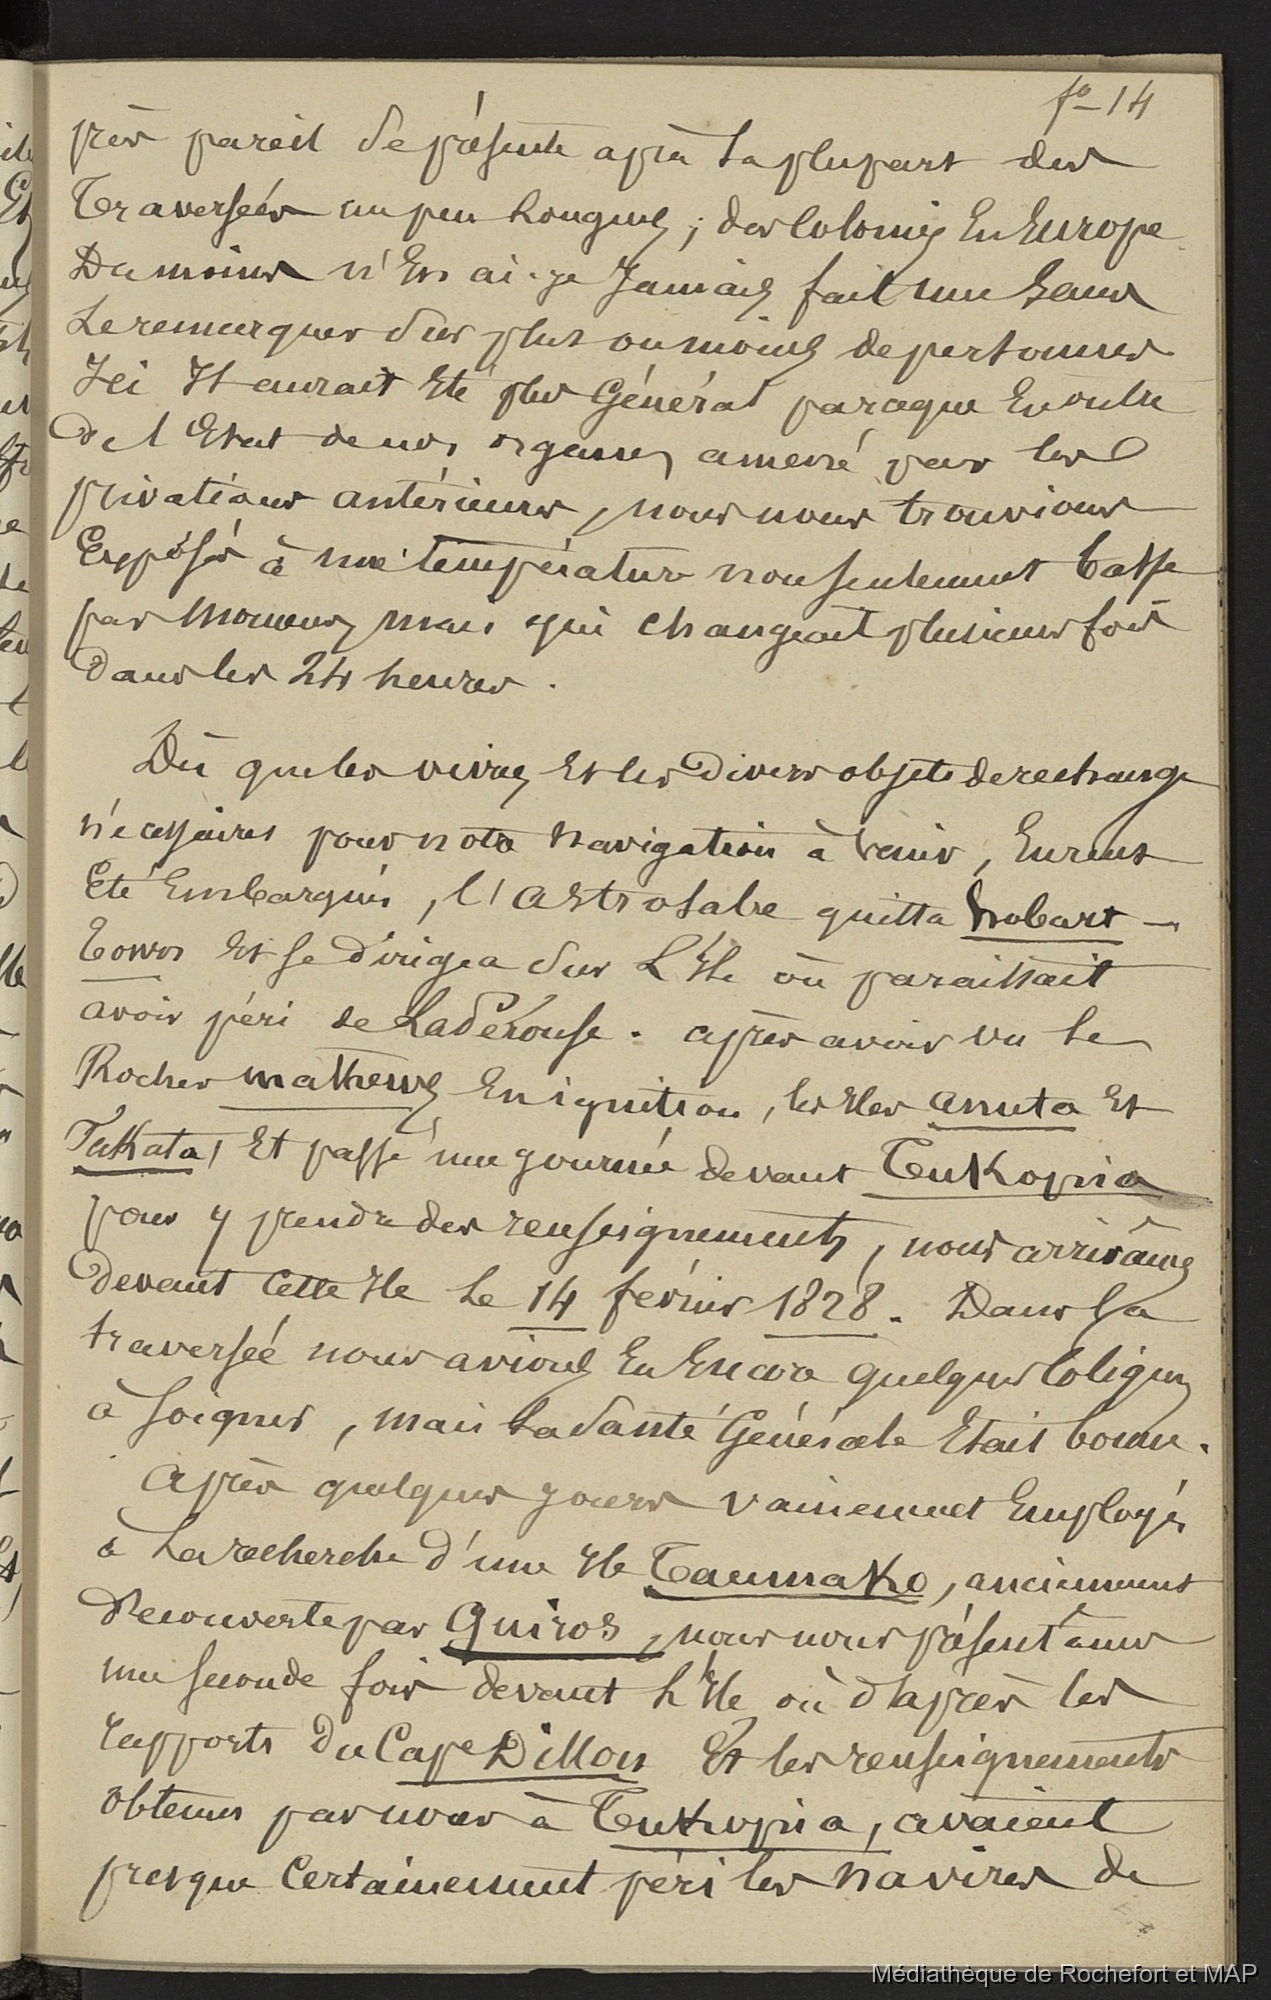 fo 14
près pareil se présente après la plupart des
Traversées un peu Longues ; des Colonies En Europe
Du moins n'En ai-je Jamais fait une Sans
Le remarquer sur plus ou moins de personnes
Ici Il aurait Eté plus Général parceque En outre
de l'Etat de nos organes amené par les
privations antérieures, nous nous trouvions
Exposés à une température non seulement basse
par Moments, mais qui changeait plusieurs fois
Dans les 24 heures.
Dès que les vivres Et les Divers objets de rechange
nécessaires pour notre Navigation à Venir, Eurent
Eté Embarqués, l'Astrolabe quitta hobart-
Town Et se Dirigea sur L'Ile où paraissait
avoir péri de LaPérouse. après avoir vu le
Rocher mathews En ignition, les Iles anuta Et
Fatkata, Et passé une journée devant Teukopia
pour y prendre des renseignements, nous arrivâmes
Devant Cette Ile Le 14 février 1828. Dans la
traversée nous avions Eu Encore quelques Coliques
à Soigner, mais La Santé Générale Etait bonne.
Après quelques jours vainement Employés
à La recherche d'une Ile Taumako, anciennement
Découverte par Quiros, nous nous présentâmes
une seconde fois devant L'Ile où d'après les
rapports Du Cape Dillon Et les renseignements
obtenus par nous à Teukopia, avaient
presque Certainement péri les Navires de
Médiathèque de Rochefort et MAP